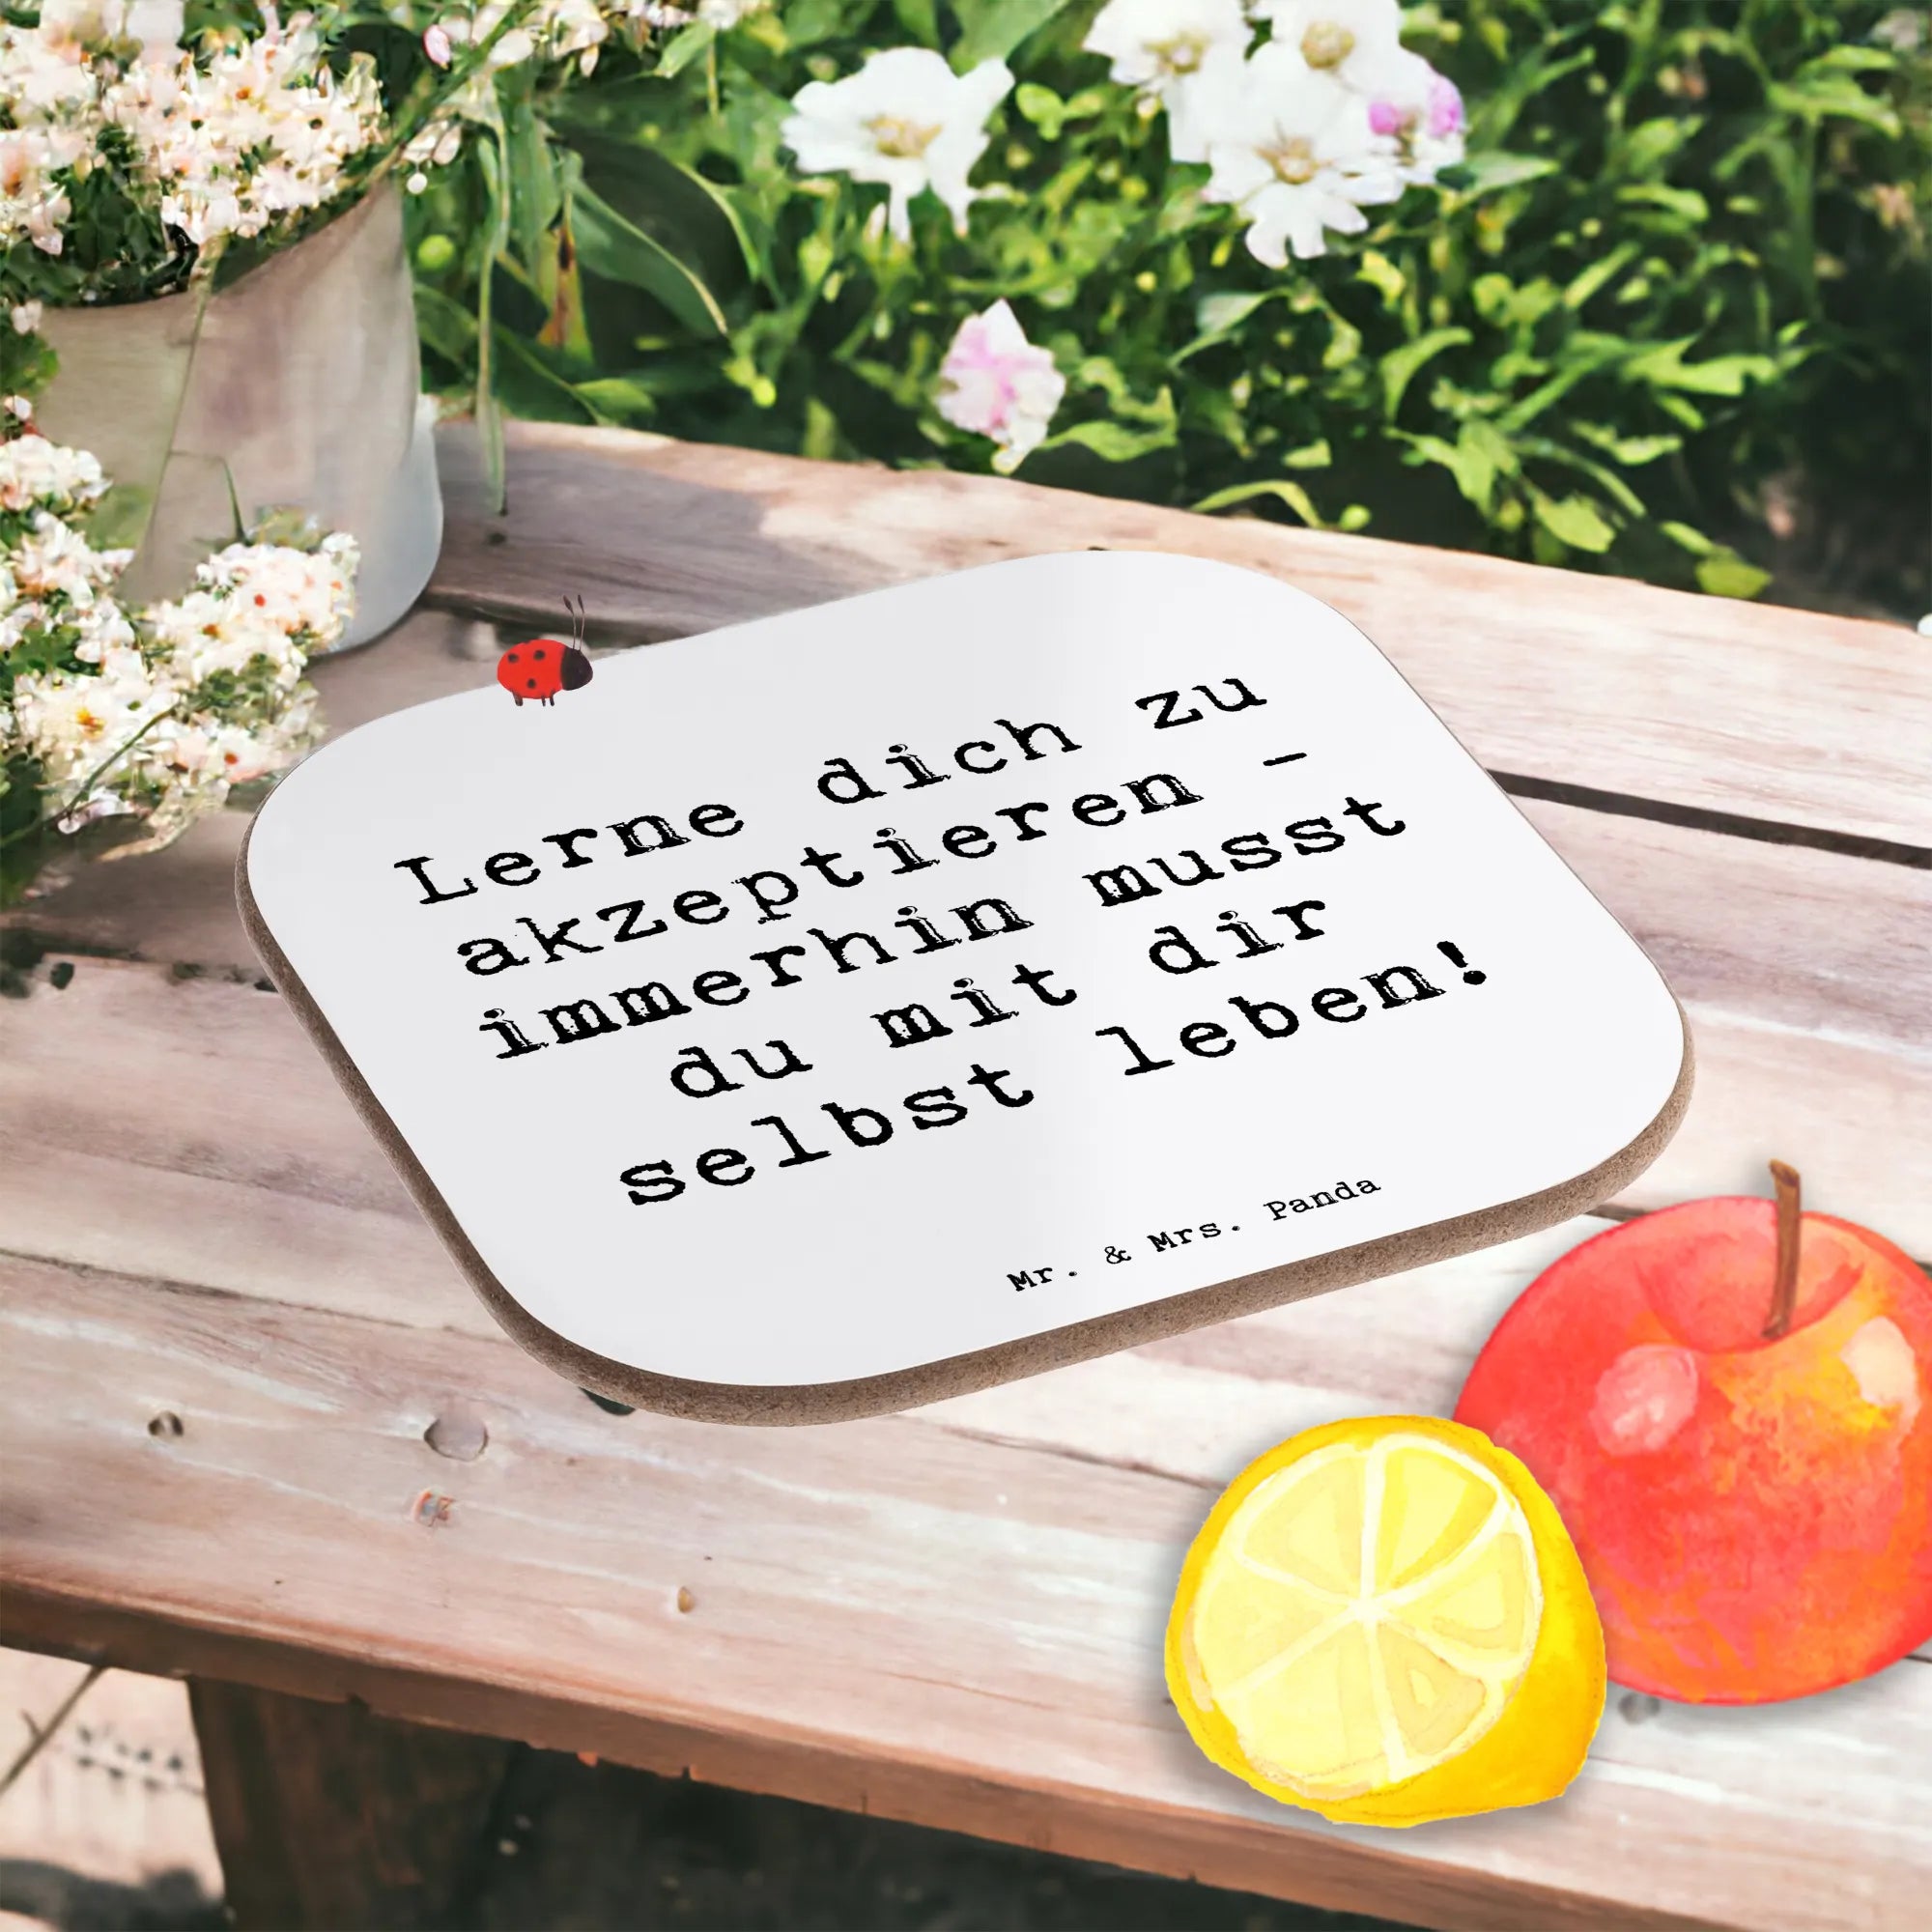 Lerne dich zu
akzeptieren -
immerhin musst
du mit dir
selbst leben!
Mr. & Mrs. Panda